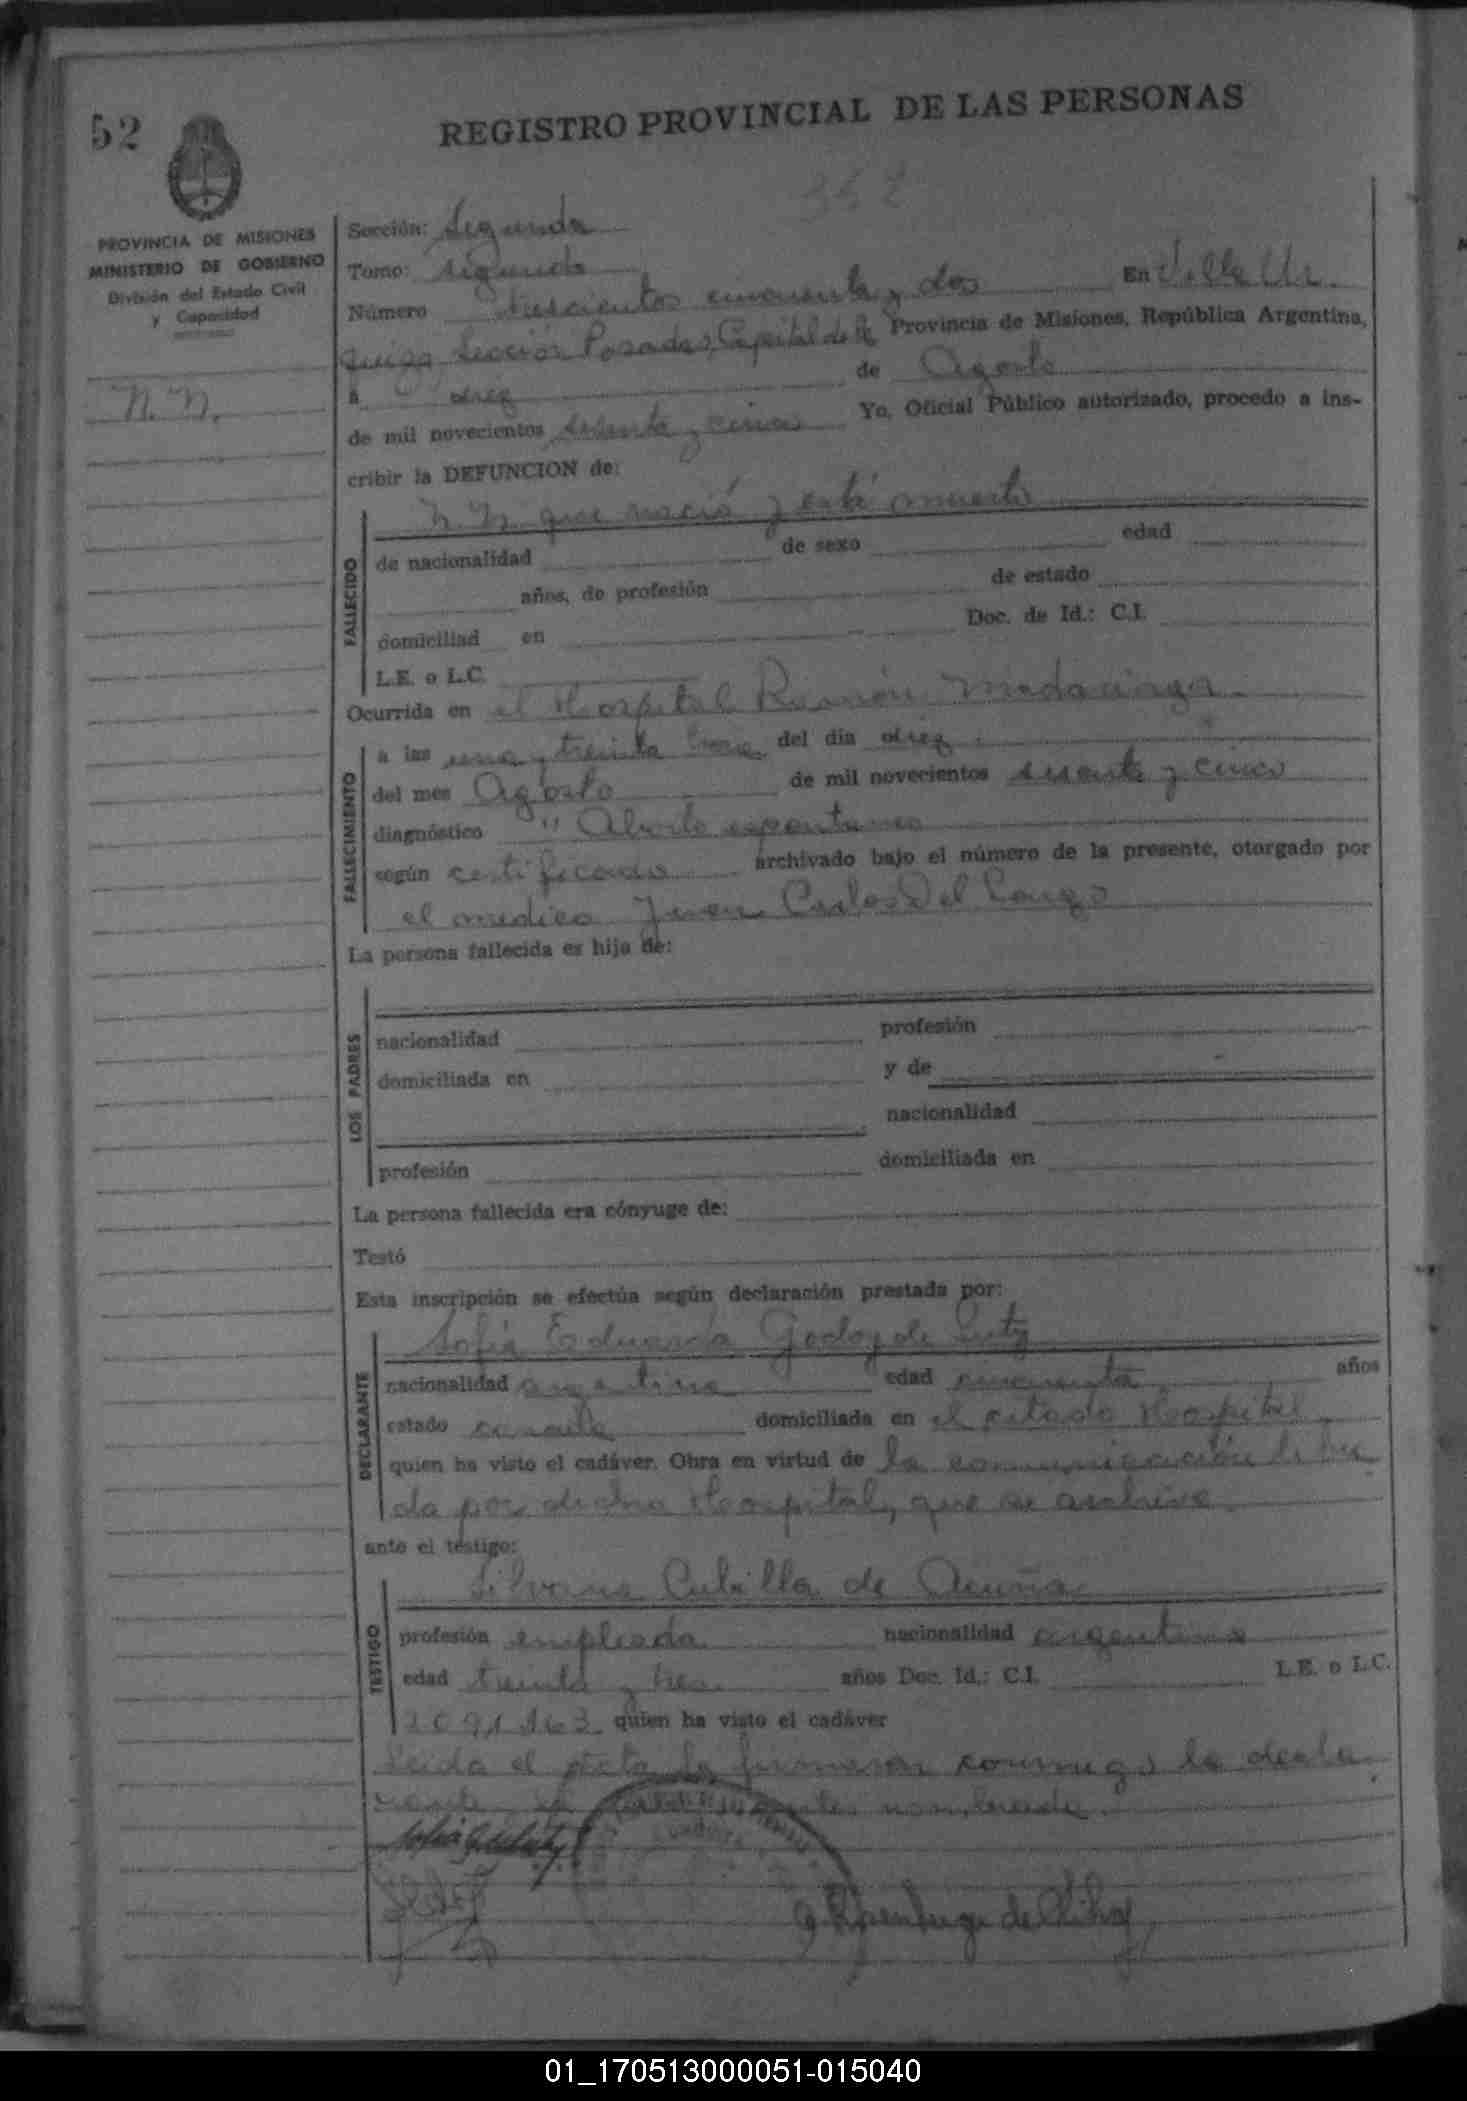 52
REGISTRO PROVINCIAL DE LAS PERSONAS
352
PROVINCIA DE MISIONES
MINISTERIO DE GOBIERNO
División del Estado Civil
y Capacidad
N.N.
Sección: Segunda
Tomo: Segundo
Número trescientos cincuenta y dos En Villa Ur
quiza Sección Posadas, Capital de la Provincia de Misiones, República Argentina,
a diez de Agosto
de mil novecientos sesenta y cinco Yo, Oficial Público autorizado, procedo a ins-
cribir la DEFUNCION de:
N.N. que nació y está muerto
FALLECIDO
de nacionalidad de sexo edad
años, de profesión de estado
domiciliad en Doc. de Id.: C.I.
L.E. o L.C.
Ocurrida en el Hospital Ramón Madariaga
FALLECIMIENTO
a las una y treinta horas del día diez
del mes Agosto de mil novecientos sesenta y cinco
diagnóstico "Aborto espontaneo
según certificado archivado bajo el número de la presente, otorgado por
el medico Juan Carlos Del Longo
La persona fallecida es hija de:
LOS PADRES
nacionalidad profesión
domiciliada en y de
nacionalidad
profesión domiciliada en
La persona fallecida era cónyuge de:
Testó
Esta inscripción se efectúa según declaración prestada por:
Sofia Eduarda Godoy de Lutz
DECLARANTE
nacionalidad argentina edad cincuenta años
estado casada domiciliada en el citado Hospital
quien ha visto el cadáver. Obra en virtud de la comunicación libra
da por dicho Hospital, que se archiva.
ante el testigo:
Silvana Cubilla de Acuña
TESTIGO
profesión empleada nacionalidad argentina
edad treinta y tres años Doc. Id.: C.I. L.E. o L.C.
quien ha visto el cadáver
Leida el acta la firmaron conmigo la decla
rante y nombrada.
01_170513000051-015040